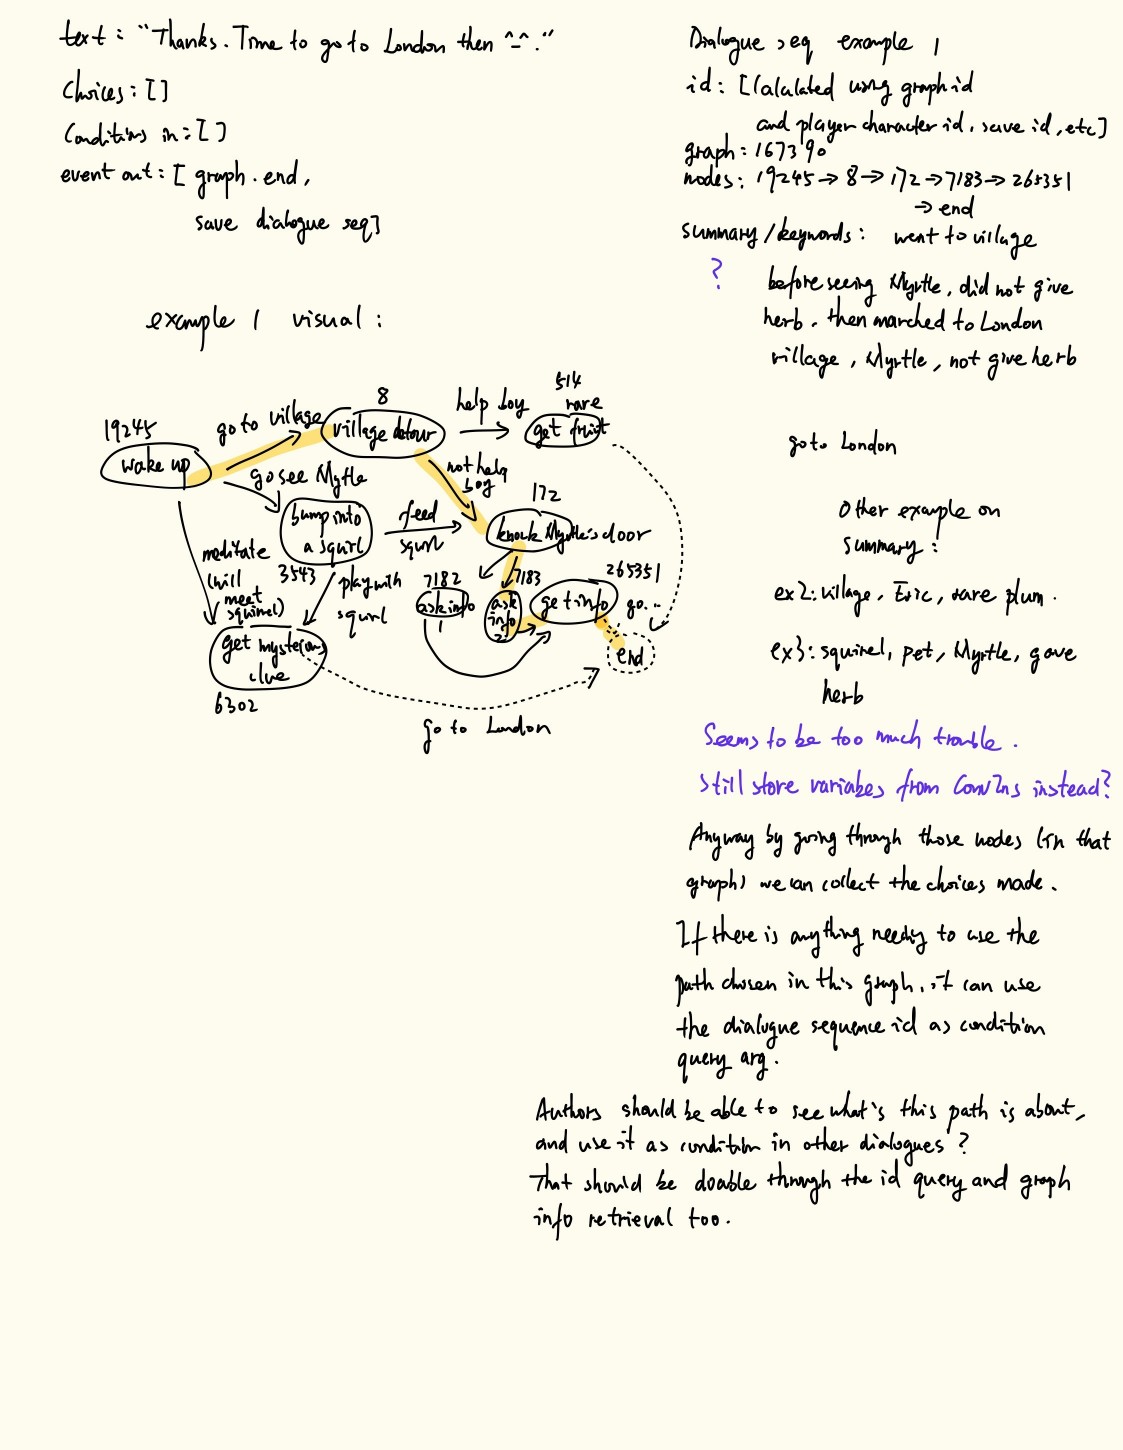 text : "Thanks. Time to go to London then ^-^."
Choices : []
Conditions in : [ ]
event out : [ graph . end ,
save dialogue seq]
example 1 visual :
19245
wake up
go to village
8
village detour
help boy
514
rare
get fruit
go see Myrtle
not help
boy
bump into
a squirl
3543
feed
squirl
172
knock Myrtle's door
meditate
(will
meet
squirrel)
play with
squirl
7182
ask info
1
7183
ask
info
2
265351
get info
go...
end
get mysterious
clue
6302
go to London
Dialogue seq example 1
id : [Calculated using graph id
and player character id, save id, etc]
graph : 167390
nodes : 19245 → 8 → 172 → 7183 → 265351
→ end
summary / keywords : went to village
?
before seeing Myrtle, did not give
herb. then marched to London
village, Myrtle, not give herb
go to London
Other example on
summary :
ex2: village, Eric, rare plum .
ex3: squirrel, pet, Myrtle, gave
herb
Seems to be too much trouble .
Still store variables from instead?
Anyway by going through those nodes (in that
graph) we can collect the choices made .
If there is anything needing to use the
path chosen in this graph, it can use
the dialogue sequence id as condition
query arg .
Authors should be able to see what's this path is about,
and use it as condition in other dialogues ?
That should be doable through the id query and graph
info retrieval too .